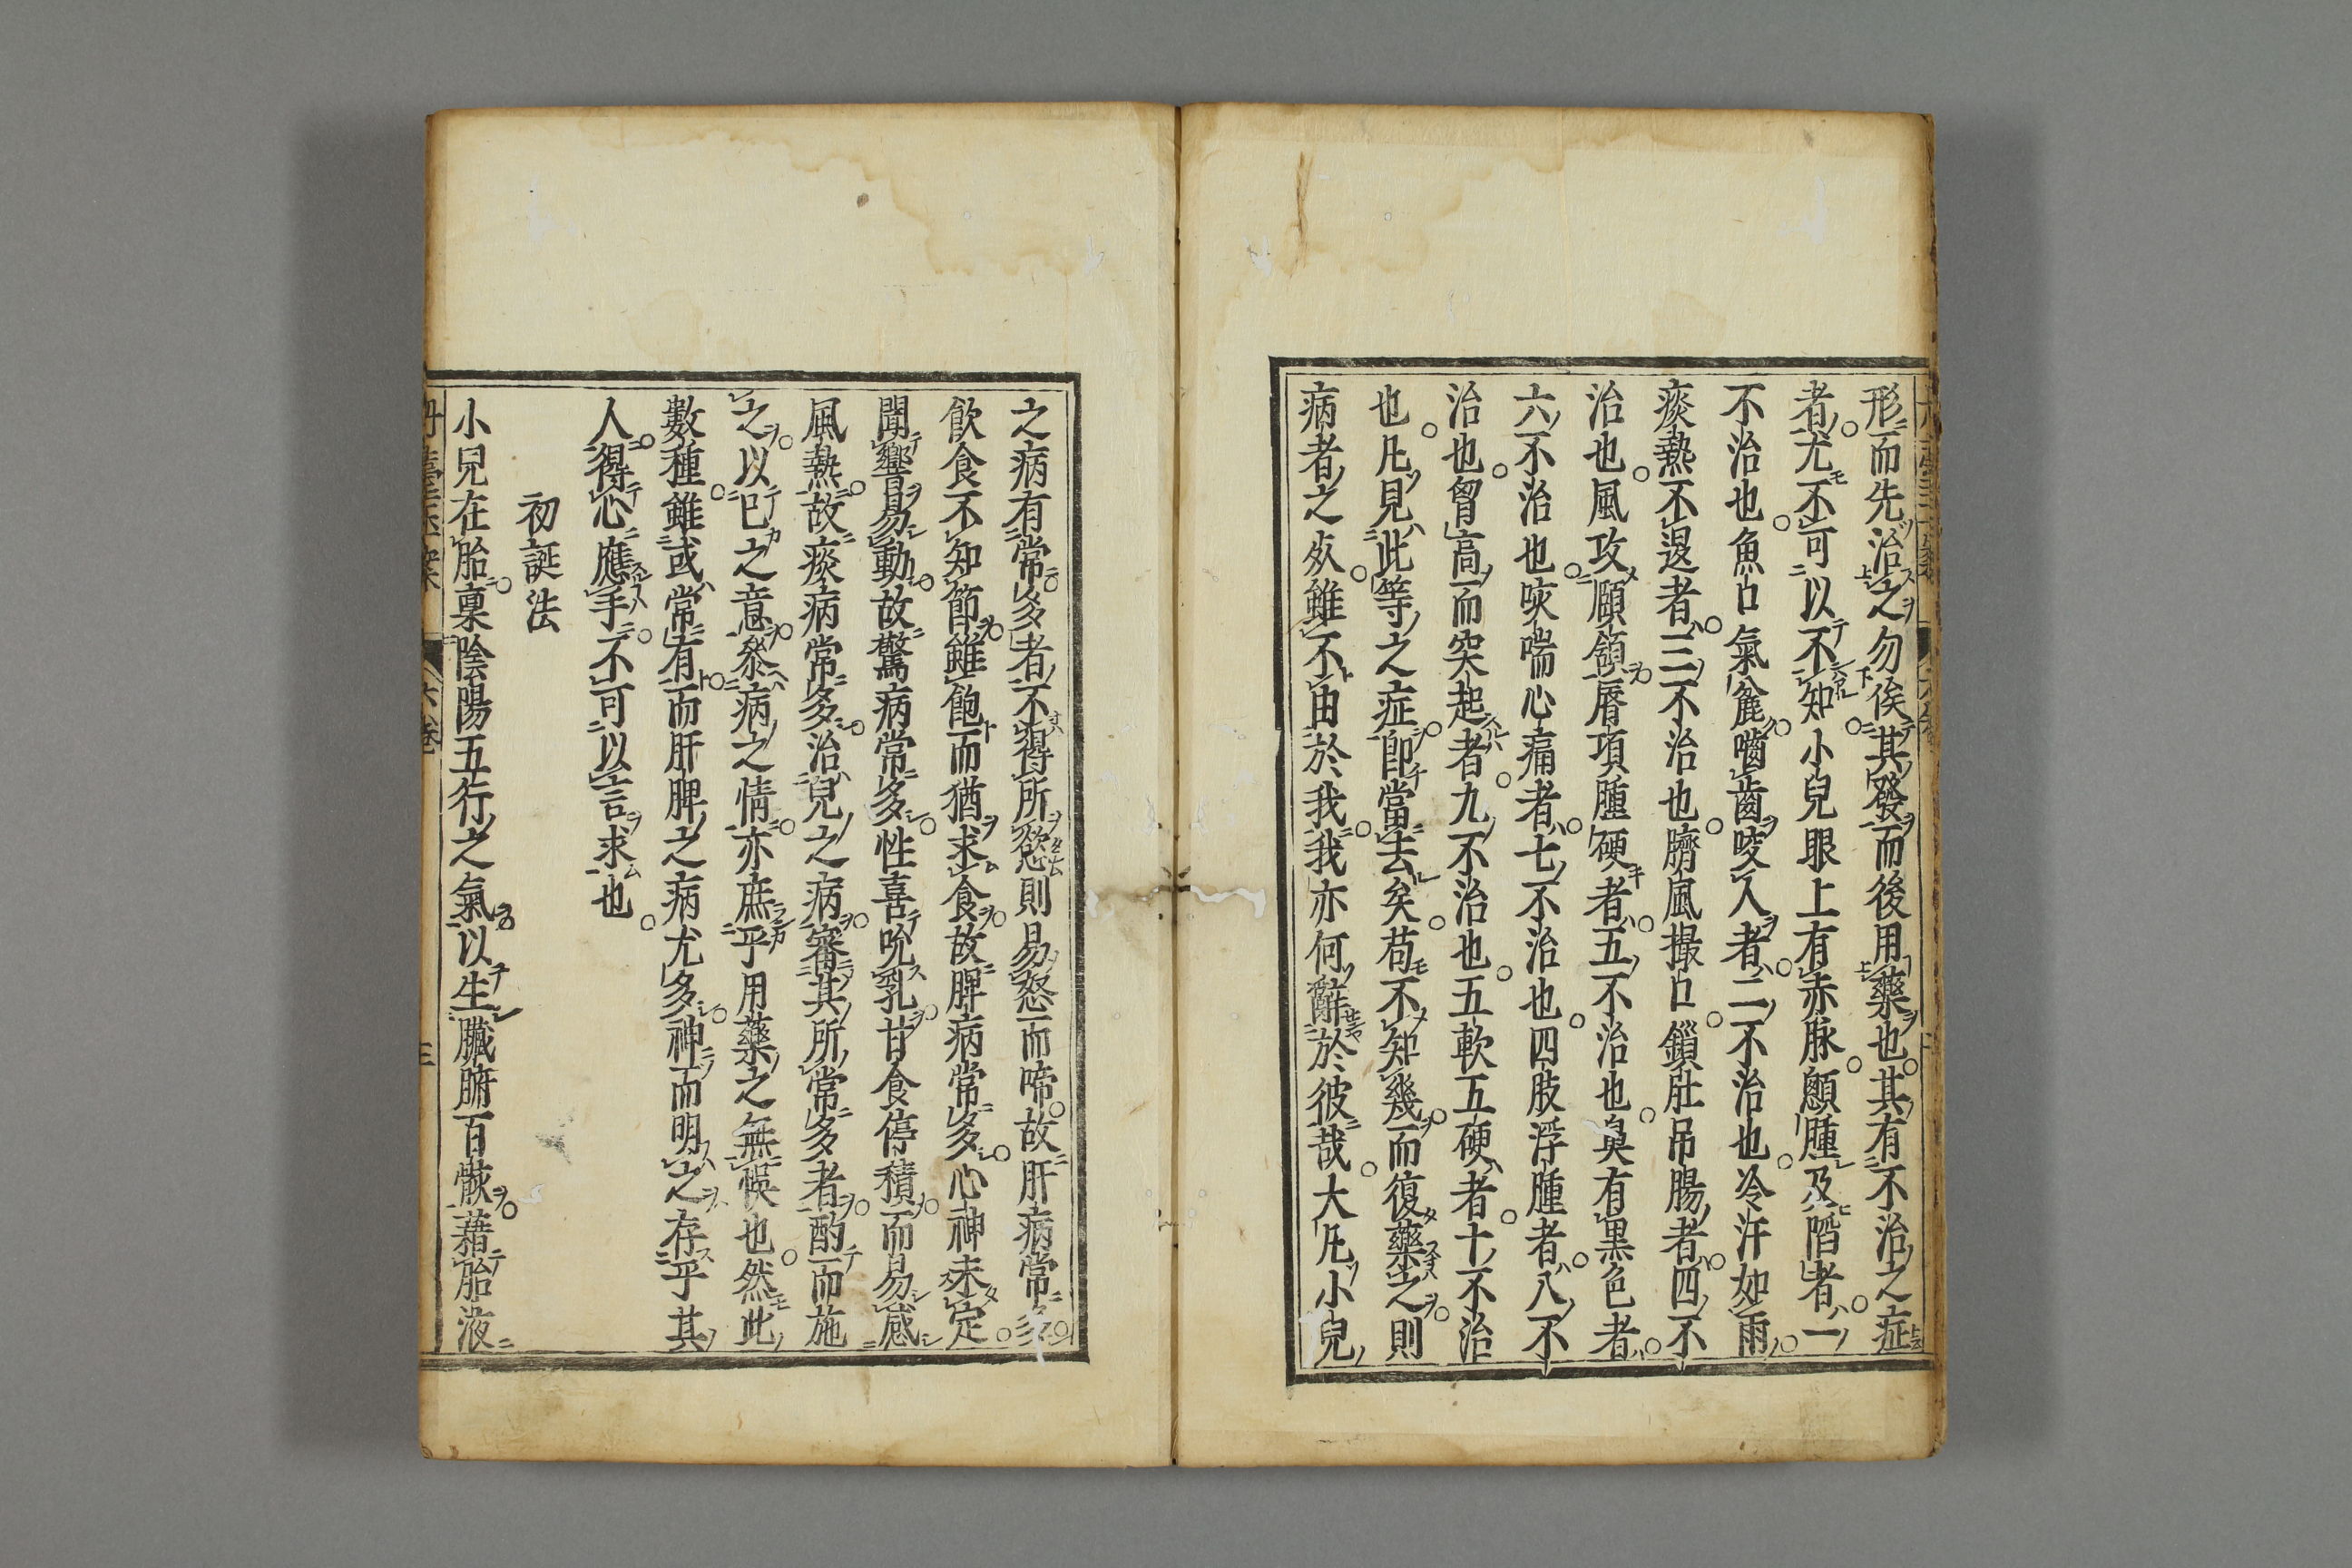 形而先治之勿俟其發而後用藥也其有不治之症
者尤不可以不知小兒眼上有赤脉顖腫及陷者一
不治也魚口氣麄嚙齒咬人者二不治也冷汗如雨
痰熱不退者三不治也臍風撮口鎖肚吊腸者四不
治也風攻頤頷唇項腫硬者五不治也臭有黒色者
六不治也咳喘心痛者七不治也四肢浮腫者八不
治也胷高而突起者九不治也五軟五硬者十不治
也凡見此等之症即當去矣苟不知幾而復藥之則
病者之灾雖不由於我我亦何辭於彼哉大凡小兒
之病有常多者不得所慾則易怒而啼故肝病常多
飲食不知節雖飽而猶求食故脾病常多心神未定
聞響易動故驚病常多性喜吮乳甘食停積而易感
風熱故痰病常多治兒之病審其所常多者酌而施
之以已之意叅病之情亦庶乎用藥之無悞也然此
數種雖或常有而肝脾之病尤多神而明之存乎其
人得心應手不可以言求也
初誕法
小兒在胎稟陰陽五行之氣以生臟腑百骸藉胎液
六卷
三